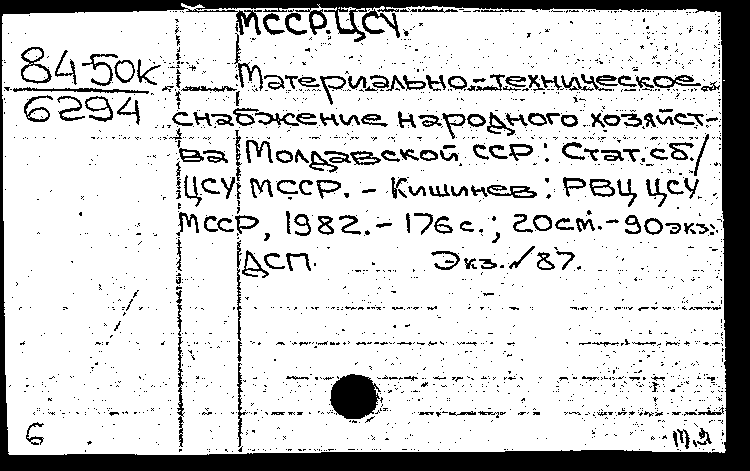 МССР. ЦСУ.
84-50К
6294
Материально-техническое
снабжение народного хозяйст-
ва Молдавской ССР: Стат. сб./
ЦСУ МССР. - Кишинев: РВЦ ЦСУ
МССР, 1982. - 176 с.; 20см. - 90экз.
ДСП. Экз. √ 87.
6